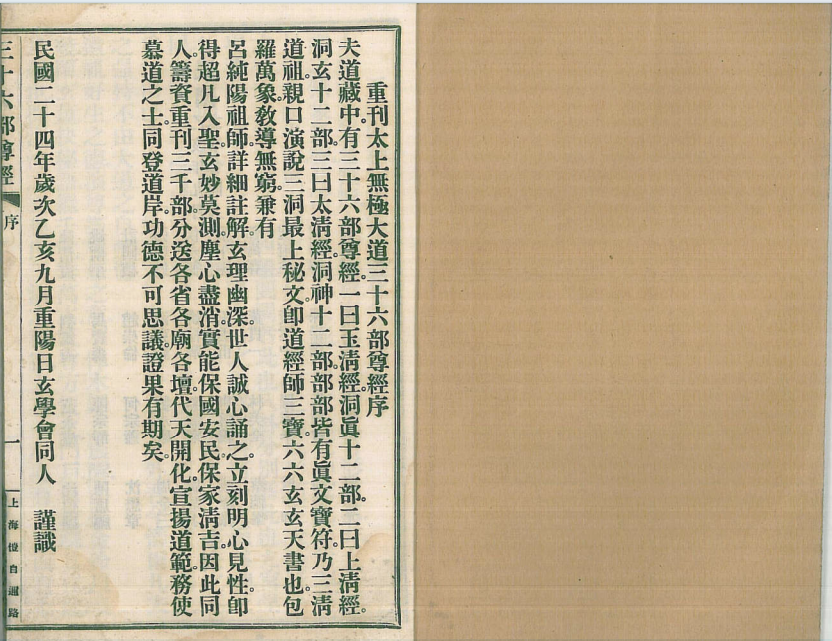 重刊太上無極大道三十六部尊經序
夫道藏中有三十六部尊經。一曰玉淸經。洞眞十二部。二曰上淸經。
洞玄十二部。三曰太淸經。洞神十二部。部部皆有眞文寶符。乃三淸
道祖。親口演說三洞最上秘文。卽道經師三寶。六六玄玄天書也。包
羅萬象。敎導無窮。兼有
呂純陽祖師。詳細註解。玄理幽深。世人誠心誦之。立刻明心見性。卽
得超凡入聖。玄妙莫測。塵心盡消。實能保國安民。保家淸吉。因此同
人籌資重刊三千部。分送各省各廟各壇。代天開化。宣揚道範。務使
慕道之士。同登道岸。功德不可思議。證果有期矣。
民國二十四年歲次乙亥九月重陽日玄學會同人 謹識
三十六部尊經 序 一 上海 自 路